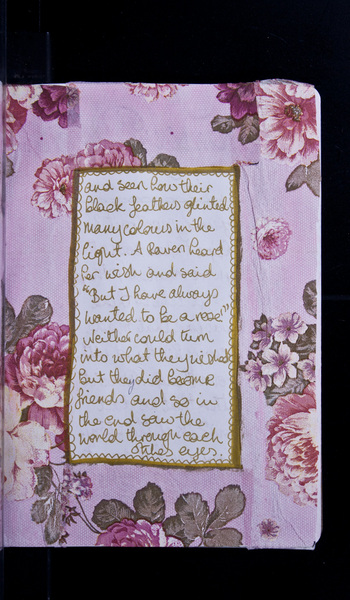 and seen how their
black feathers glinted
many colours in the
light. A Raven heard
her wish and said
"But I have always
wanted to be a rose!"
Neither could turn
into what they wished
but they did become
friends and so in
the end saw the
world through each
others eyes.